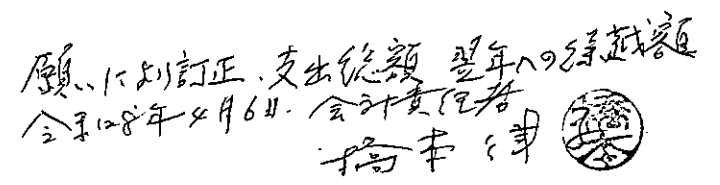 願いにより訂正、支出総額 翌年への繰越額
令和28年4月6日. 会計責任者
橋本